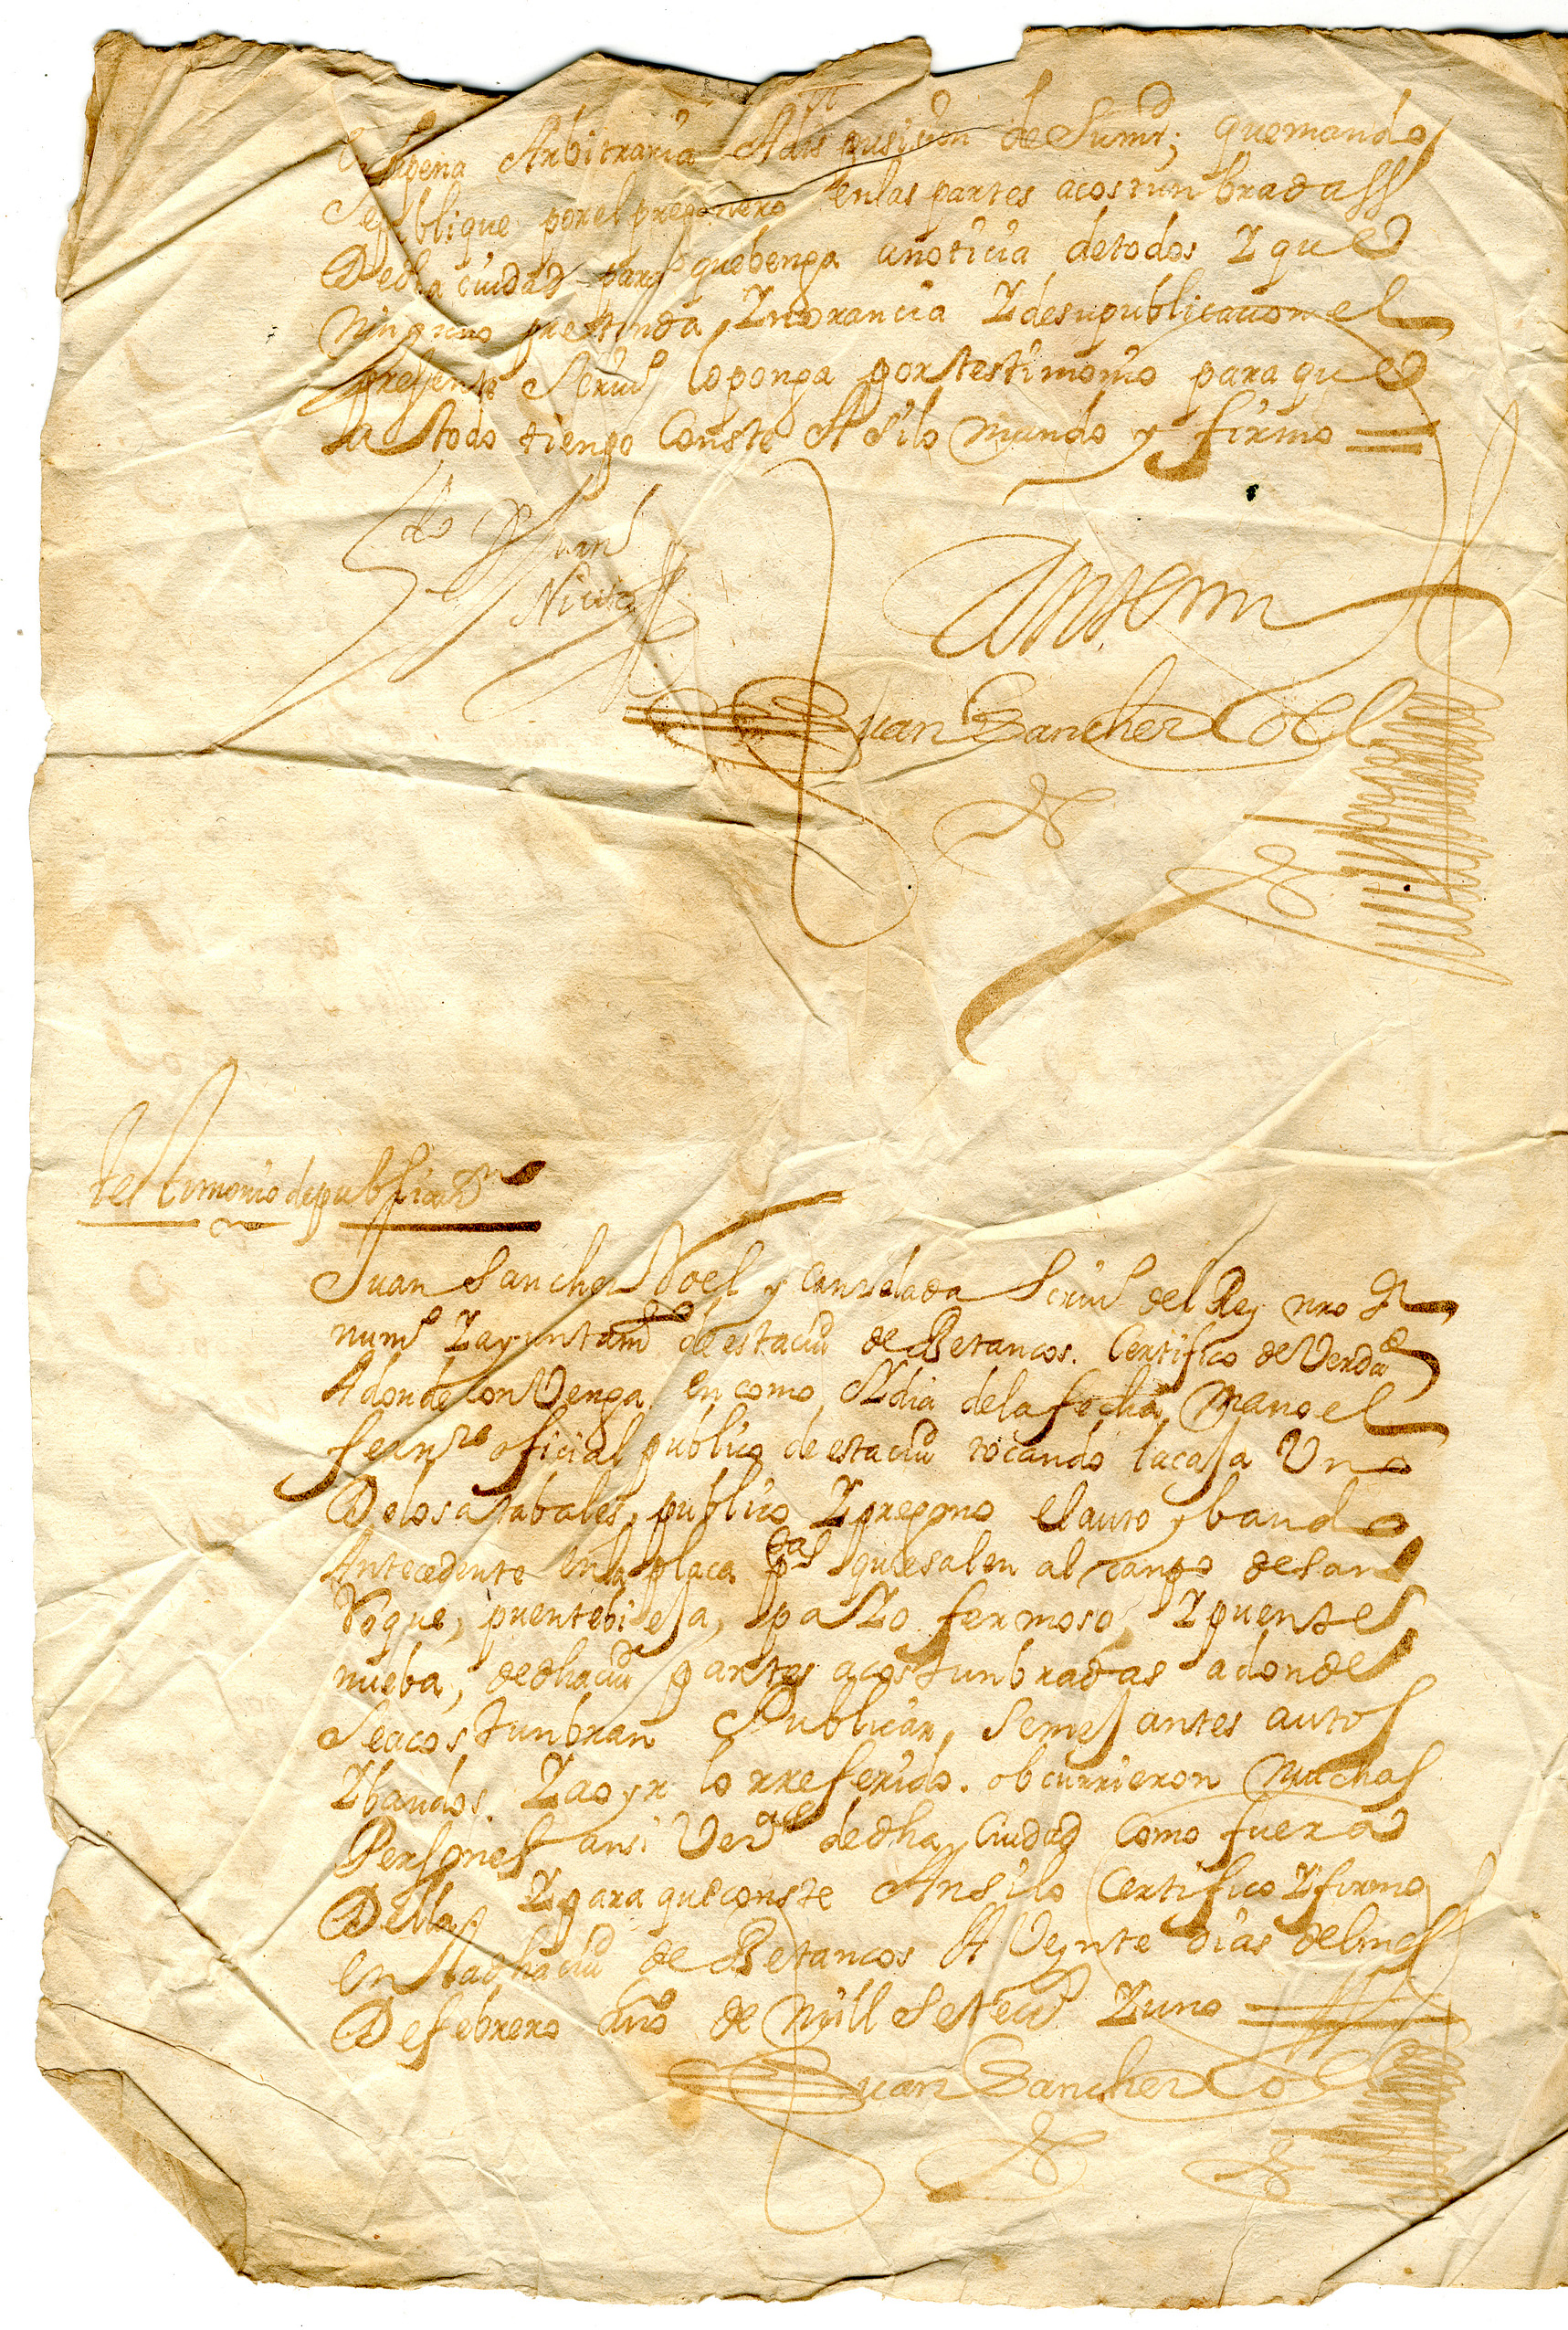 pena Arbitraria A dispusiçion de Sumrd; que mando
Se publique por el pregonero en las partes acostunbradass
De esta ciudad para que benga a noticia de todos Y que
Ninguno pretenda Ynorancia Y de su publicacion el
pressente Scriuo lo ponga por testimonio para que
a todo tienpo Conste Asilo mando y firmo
Juan
Antemi
Juan Sanchez Coel
testimonio de publicaon
Juan Sanchez Voel y Canzelada Scriuo del Rey nro Sr
numo Y ayuntamto de esta ciud de Betancos. Certifico de Verdad
A donde conVenga en como, el dia de la fecha, Manoel
ferrnz oficial publico de esta ciud tocando la caja Uno
De los atabales, publico Y pregono el auto y bando
Antecedente en la plaça que salen al canpo de san
Roque, puente biexa, passo fermoso, Y puente
nueba, de dha ciud partes acostunbradas a donde
Se acostunbran Publicar, Semejantes autos
Y bandos. Y a oyr lo rreferido. obcurrieron Muchas
Personas ansi Vezos de dha Ciudad Como fuera
Della, Y para que conste Ansilo Certifico Y firmo
en la dha ciud de Betancos A Veynte dias del mes
De febrero Año de mill Setecos Y uno
Juan Sanchez Coel